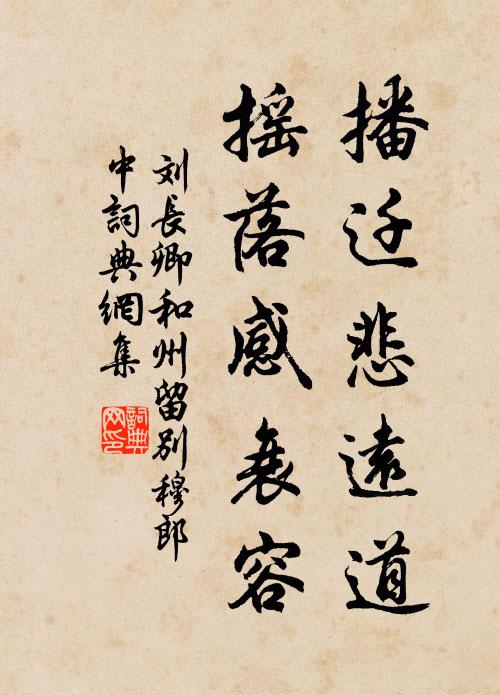 播迁悲遠道
摇落感衰容
刘長卿和州留别穆郎
中詞典網集
詞典
网印